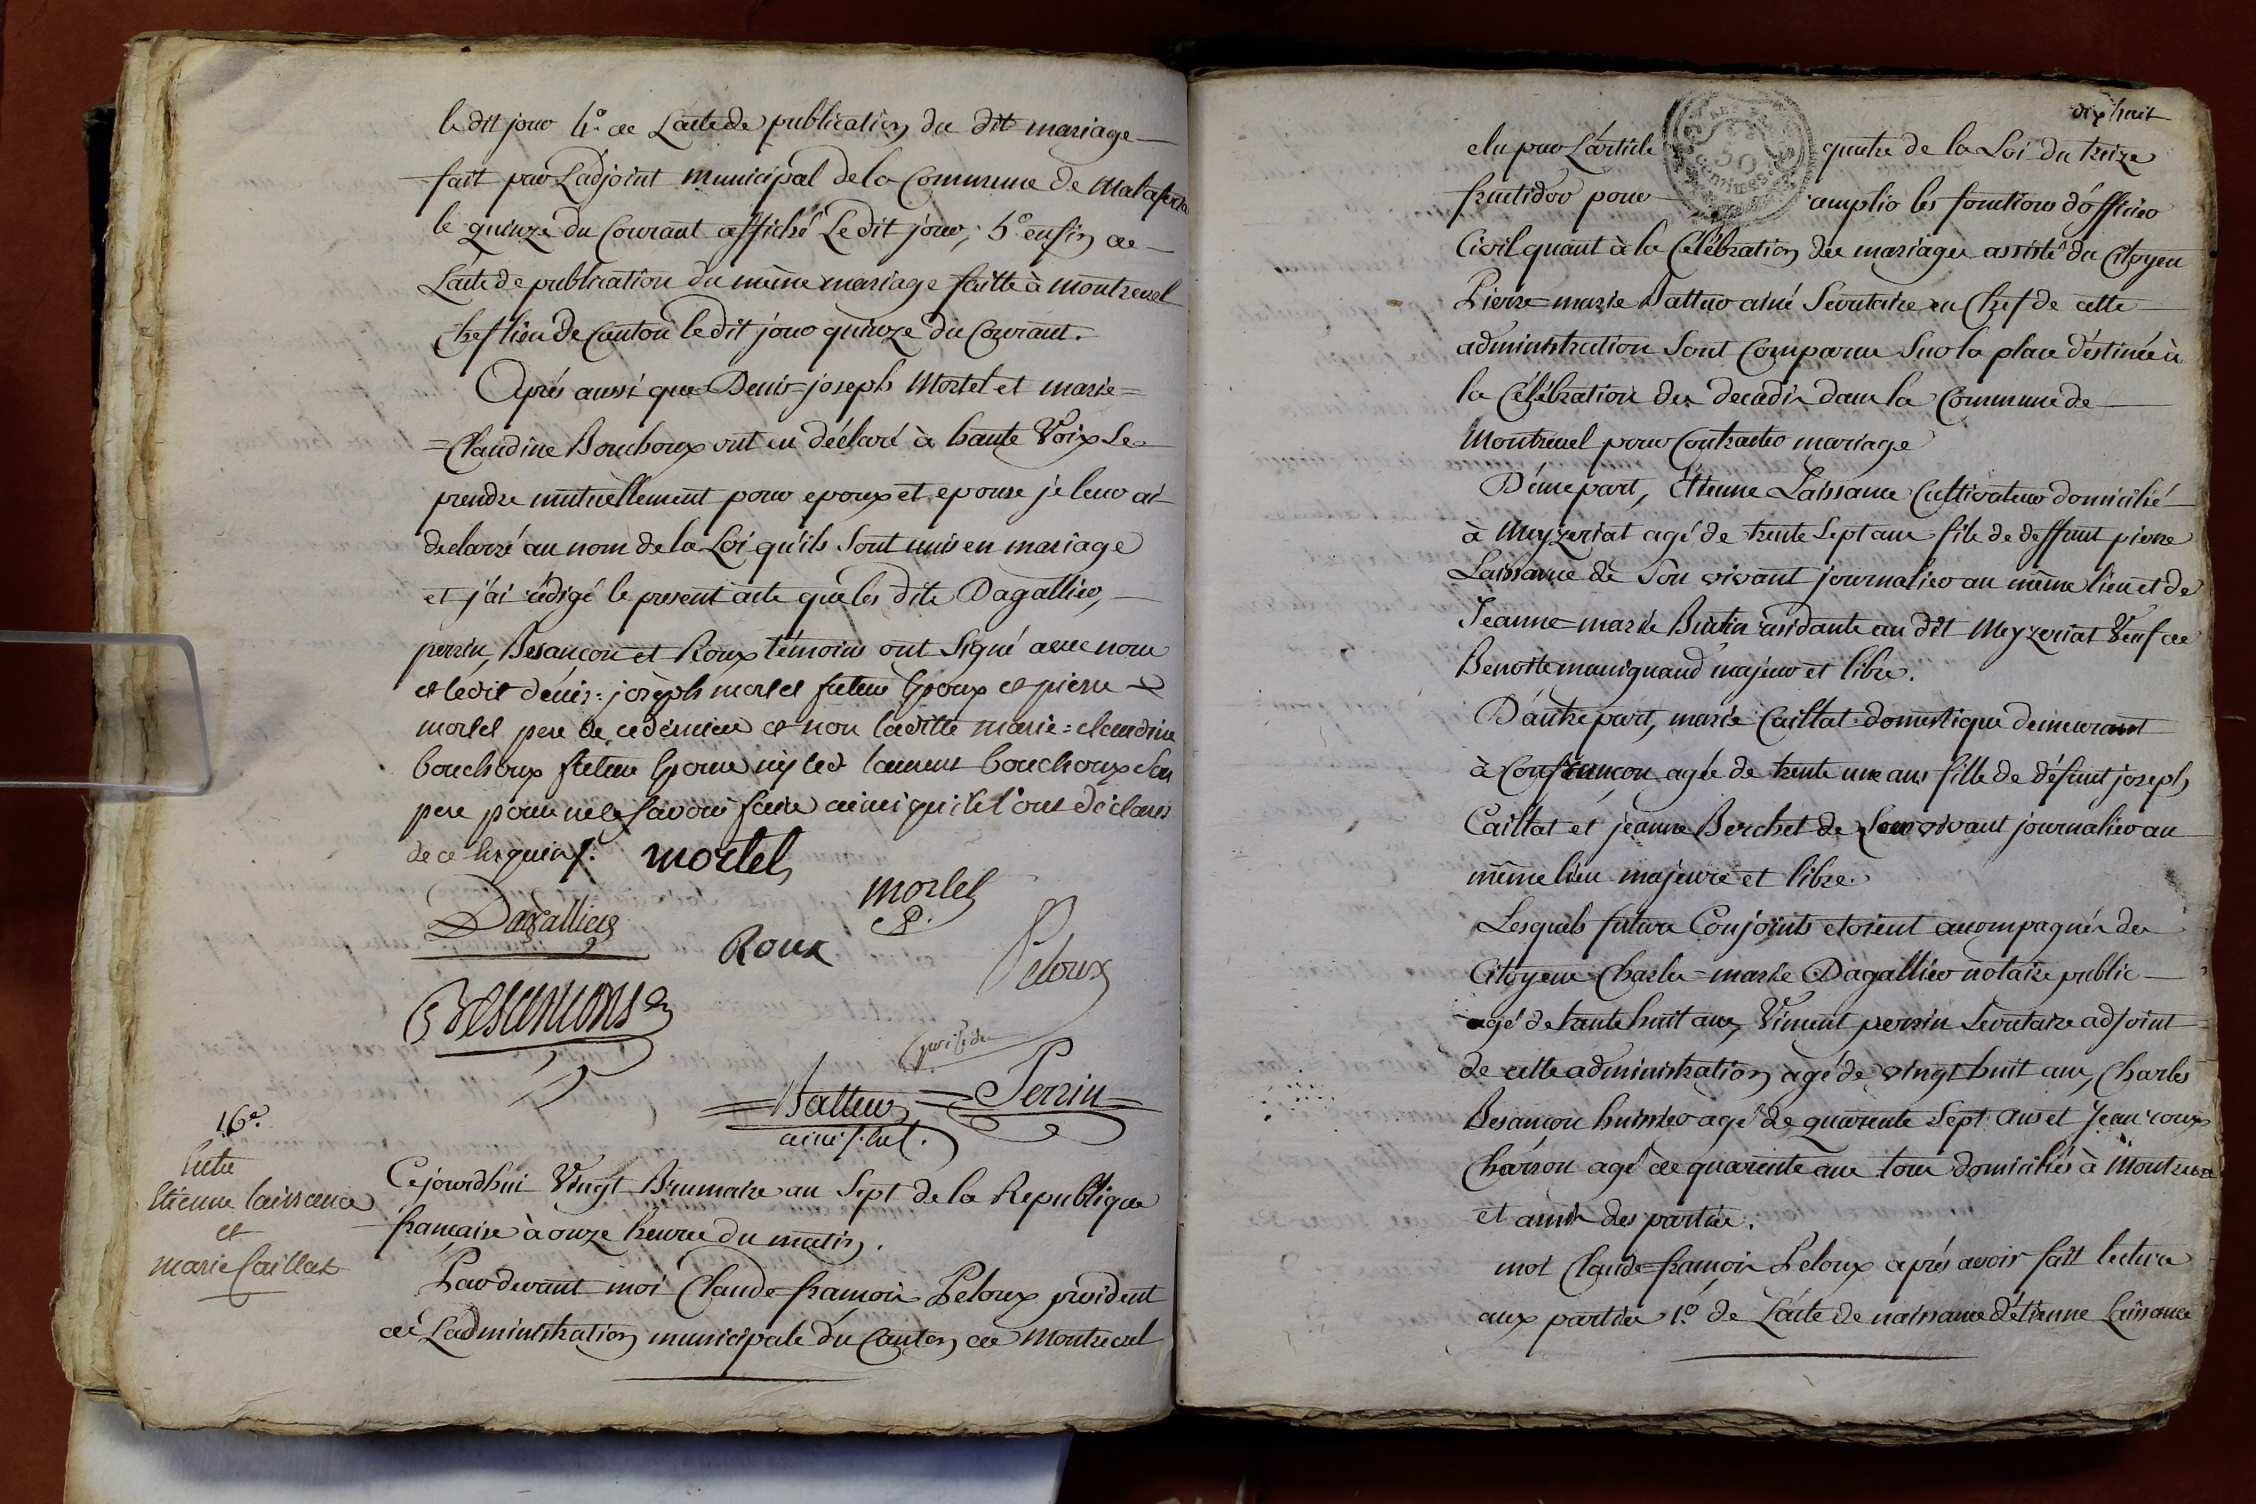 le dit jour 4.º de L'acte de publication du dit mariage
fait par L'adjoint municipal de la Commune de Malafretaz
le quinze du Courant affiché Le dit jour; 5.º enfin de
L'acte de publication du même mariage faitte à montrevel
Chef lieu de Canton le dit jour quinze du Courant.
Après aussi que Denis=joseph Mortel et marie=
=Claudine Bouchoux ont eu déclaré à haute Voix Se
prendre mutuellement pour epoux et epouse je leur ai
declarré au nom de la Loi qu'ils sont unis en mariage
et j'ai rédigé le present acte que les dits Dagallier,
perrin, Besançon et Roux témoins ont Signé avec nous
et ledit dénis=joseph mortel futur Epoux et pierre
mortel pere de ce dernier et non laditte marie=claudine
bouchoux future Epouse ny led laurent bouchoux son
pere pour ne le savoir faire ainsi qu'ils l'ont déclaré
de ce Enquis /.
mortel
mortel
P.
Dagallier
Roux
Peloux
Besancons
presidt
=Batteur= =Perrin=
ainé s. en ch.
16.e
Entre
Etienne laissance
et
marie Caillat
Cejourdhui Vingt Brumaire an Sept de la Republique
francaise à onze heures du matin.
Pardevant moi Claude=françois Peloux président
de L'administration municipale du Canton de Montrevel
dix huit
elu par L'article quatre de la Loi du treize
fructidor pour remplir les fonctions d'officier
Civil quant à la Célébration des mariages assisté du Citoyen
Pierre=marie Batteur ainé Secretaire en Chef de cette
administration Sont Comparus Sur la place déstinée à
la Célébration des decadis dans la Commune de
Montrevel pour Contracter mariage
D'une part, Etienne Laissance Cultivateur domicilié
à Meyzeriat agé de trente Sept ans fils de deffunt pierre
Laissance de Son vivant journalier au même lieu et de
Jeanne=marie Burtin residante au dit Meyzeriat Veuf de
Benoite manignand majeur et libre.
D'autre part, marie Caillat domestique demeurant
à Confrançon agée de trente une ans fille de défunt joseph
Caillat et jeanne Berchet de Leur vivant journalier au
même lieu majeure et libre.
Lesquels futurs Conjoints etoient acompagnés des
Citoyens Charles=marie Dagallier notaire public
agé de trente huit ans, Vincent perrin Secretaire adjoint
de cette administration agé de vingt huit ans, Charles
Besançon huissier agé de quarente Sept ans et Jean roux
Charron agé de quarente ans tous domiciliés à Montrevel
et amis des parties.
moi Claude=françois Peloux après avoir fait lecture
aux parties 1.º de L'acte de naissance d'étienne Laissance